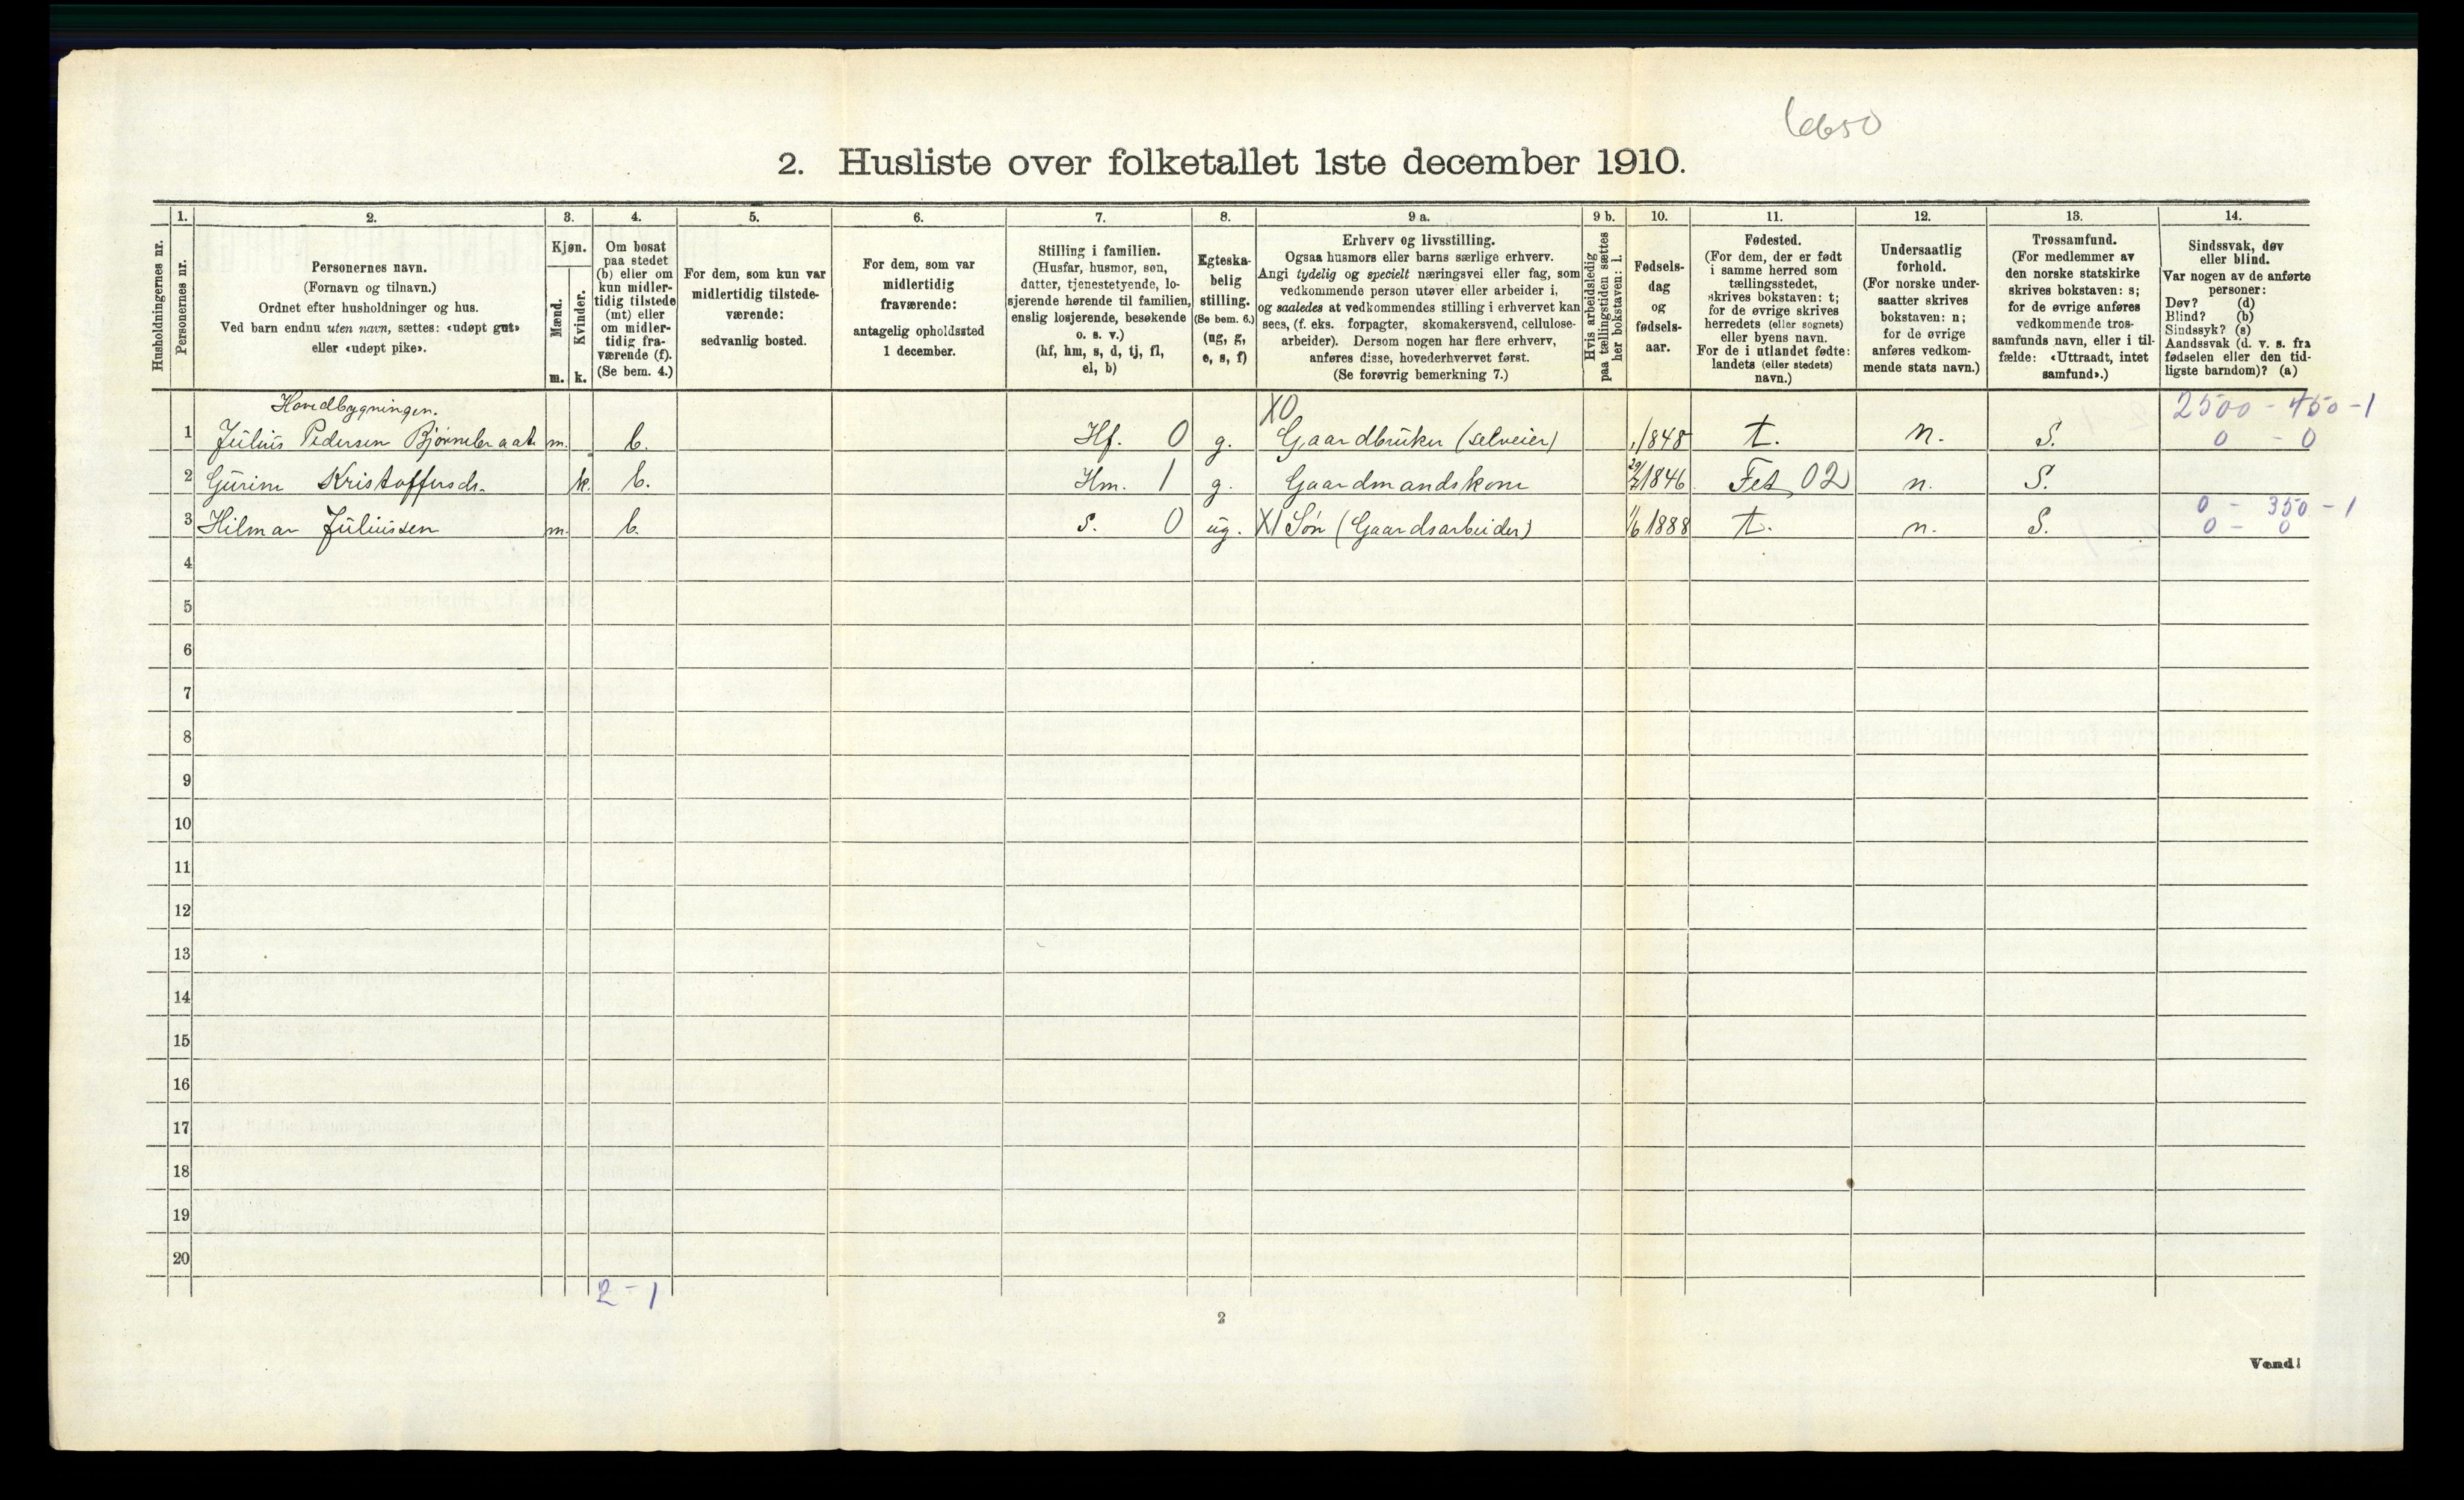 6650
2. Husliste over folketallet 1ste december 1910.
Husholdningernes nr.
1.
Personernes nr.
2.
Personernes navn.
(Fornavn og tilnavn.)
Ordnet efter husholdninger og hus.
Ved barn endnu uten navn, sættes: «udøpt gut»
eller «udøpt pike».
3.
Kjøn.
Mænd.
Kvinder.
m. k.
4.
Om bosat
paa stedet
(b) eller om
kun midler-
tidig tilstede
(mt) eller
om midler-
tidig fra-
værende (f).
(Se bem. 4.)
5.
For dem, som kun var
midlertidig tilstede-
værende:
sedvanlig bosted.
6.
For dem, som var
midlertidig
fraværende:
antagelig opholdssted
1 december.
7.
Stilling i familien.
(Husfar, husmor, søn,
datter, tjenestetyende, lo-
sjerende hørende til familien,
enslig losjerende, besøkende
o. s. v.)
(hf, hm, s, d, tj, fl,
el, b)
8.
Egteska-
belig
stilling.
(Se bem. 6.)
(ug, g,
e, s, f)
9 a.
Erhverv og livsstilling.
Ogsaa husmors eller barns særlige erhverv.
Angi tydelig og specielt næringsvei eller fag, som
vedkommende person utøver eller arbeider i,
og saaledes at vedkommendes stilling i erhvervet kan
sees, (f. eks. forpagter, skomakersvend, cellulose-
arbeider). Dersom nogen har flere erhverv,
anføres disse, hovederhvervet først.
(Se forøvrig bemerkning 7.)
9 b.
Hvis arbeidsledig
paa tællingstiden sættes
her bokstaven: l.
10.
Fødsels-
dag
og
fødsels-
aar.
11.
Fødested.
(For dem, der er født
i samme herred som
tællingsstedet,
skrives bokstaven: t;
for de øvrige skrives
herredets (eller sognets)
eller byens navn.
For de i utlandet fødte:
landets (eller stedets)
navn.)
12.
Undersaatlig
forhold.
(For norske under-
saatter skrives
bokstaven: n;
for de øvrige
anføres vedkom-
mende stats navn.)
13.
Trossamfund.
(For medlemmer av
den norske statskirke
skrives bokstaven: s;
for de øvrige anføres
vedkommende tros-
samfunds navn, eller i til-
fælde: «Uttraadt, intet
samfund».)
14.
Sindssvak, døv
eller blind.
Var nogen av de anførte
personer:
Døv? (d)
Blind? (b)
Sindssyk? (s)
Aandssvak (d. v. s. fra
fødselen eller den tid-
ligste barndom)? (a)
Hovedbygningen. X0 2500 - 450 - 1
1 Julius Pedersen Bjørnebraat m. b. Hf. 0 g. Gaardbruker (selveier) /1848 t. n. S. 0 - 0
2 Gurine Kristoffersdr. k. b. Hm. 1 g. Gaardmandskone 29/7 1846 Fet 02 n. S.
0 - 350 - 1
3 Hilmar Juliussen m. b. s. 0 ug. X1 Søn (Gaardsarbeider) 1/6 1888 t. n. S. 0 - 0
4
5
6
7
8
9
10
11
12
13
14
15
16
17
18
19
20
2 - 1
2
Vend!